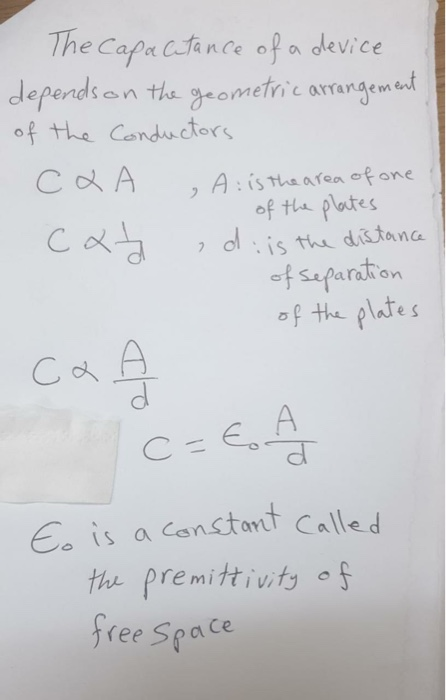 The Capacitance of a device
depends on the geometric arrangement
of the Conductors
C α A , A : is the area of one
of the plates
C α 1/d , d : is the distance
of separation
of the plates
C α A/d
C = ϵ₀ A/d
ϵ₀ is a constant called
the premittivity of
free space